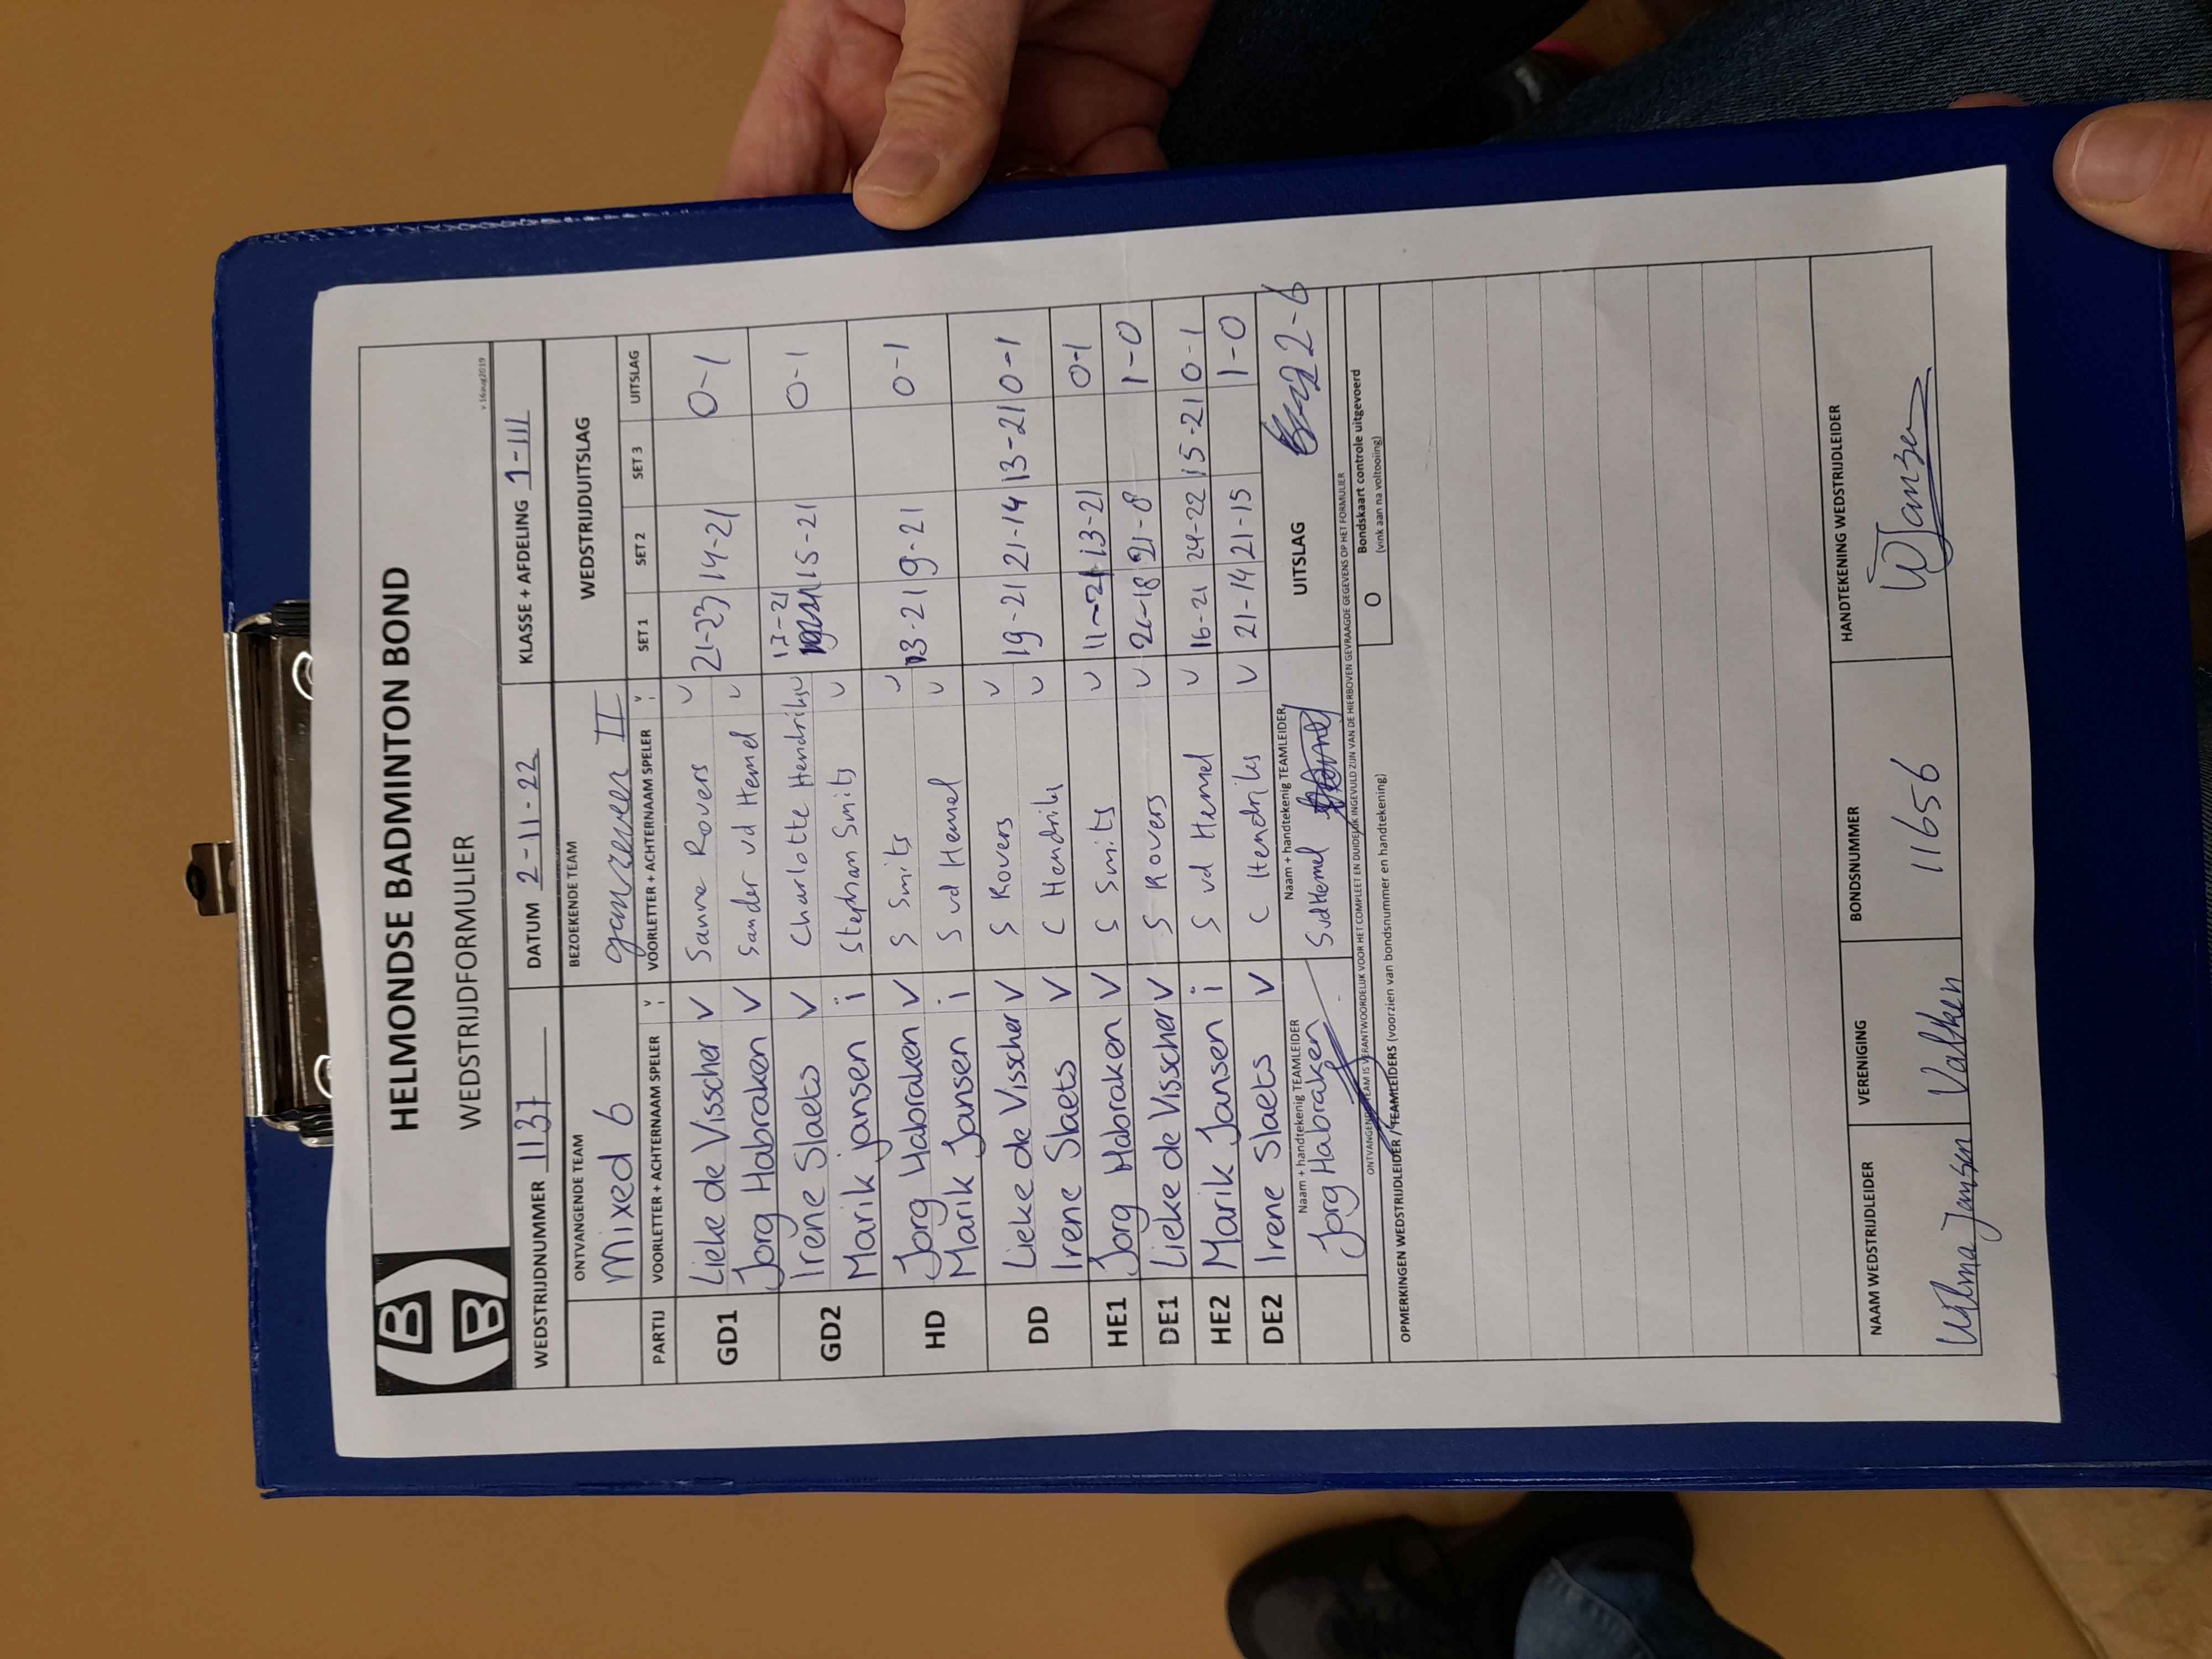 HELMONDSE BADMINTON BOND
WEDSTRIJDFORMULIER
v.16aug2019
WEDSTRIJDNUMMER 1137 DATUM 2-11-22 KLASSE + AFDELING 1-III
ONTVANGENDE TEAM BEZOEKENDE TEAM WEDSTRIJDUITSLAG
Mixed 6 II
PARTIJ VOORLETTER + ACHTERNAAM SPELER VOORLETTER + ACHTERNAAM SPELER SET 1 SET 2 SET 3 UITSLAG
GD1 Lieke de Visscher V Sanne Rovers V 21-23 14-21 0-1
Jorg Habraken V Sander vd Hemel V
GD2 Irene Slaets V Charlotte Hendriks V 17-21 15-21 0-1
Marik jansen i Stephan Smits V
HD Jorg Habraken V S Smits V 13-21 9-21 0-1
Marik Jansen i S vd Hemel V
DD Lieke de Visscher V S Rovers V 19-21 21-14 13-21 0-1
Irene Slaets V C Hendriks V
HE1 Jorg Habraken V S Smits V 11-21 13-21 0-1
DE1 Lieke de Visscher V S Rovers V 21-18 21-8 1-0
HE2 Marik Jansen i S vd Hemel V 16-21 24-22 15-21 0-1
DE2 Irene Slaets V C Hendriks V 21-14 21-15 1-0
Naam + handtekenig TEAMLEIDER Naam + handtekenig TEAMLEIDER UITSLAG 2-6
Jorg Habraken S vd Hemel
ONTVANGENDE TEAM IS VERANTWOORDELIJK VOOR HET COMPLEET EN DUIDELIJK INGEVULD ZIJN VAN DE HIERBOVEN GEVRAAGDE GEGEVENS OP HET FORMULIER
O Bondskaart controle uitgevoerd
(vink aan na voltooiing)
OPMERKINGEN WEDSTRIJDLEIDER / TEAMLEIDERS (voorzien van bondsnummer en handtekening)
NAAM WEDSTRIJDLEIDER VERENIGING BONDSNUMMER HANDTEKENING WEDSTRIJDLEIDER
Wilma Jansen Valken 11656 WJansen